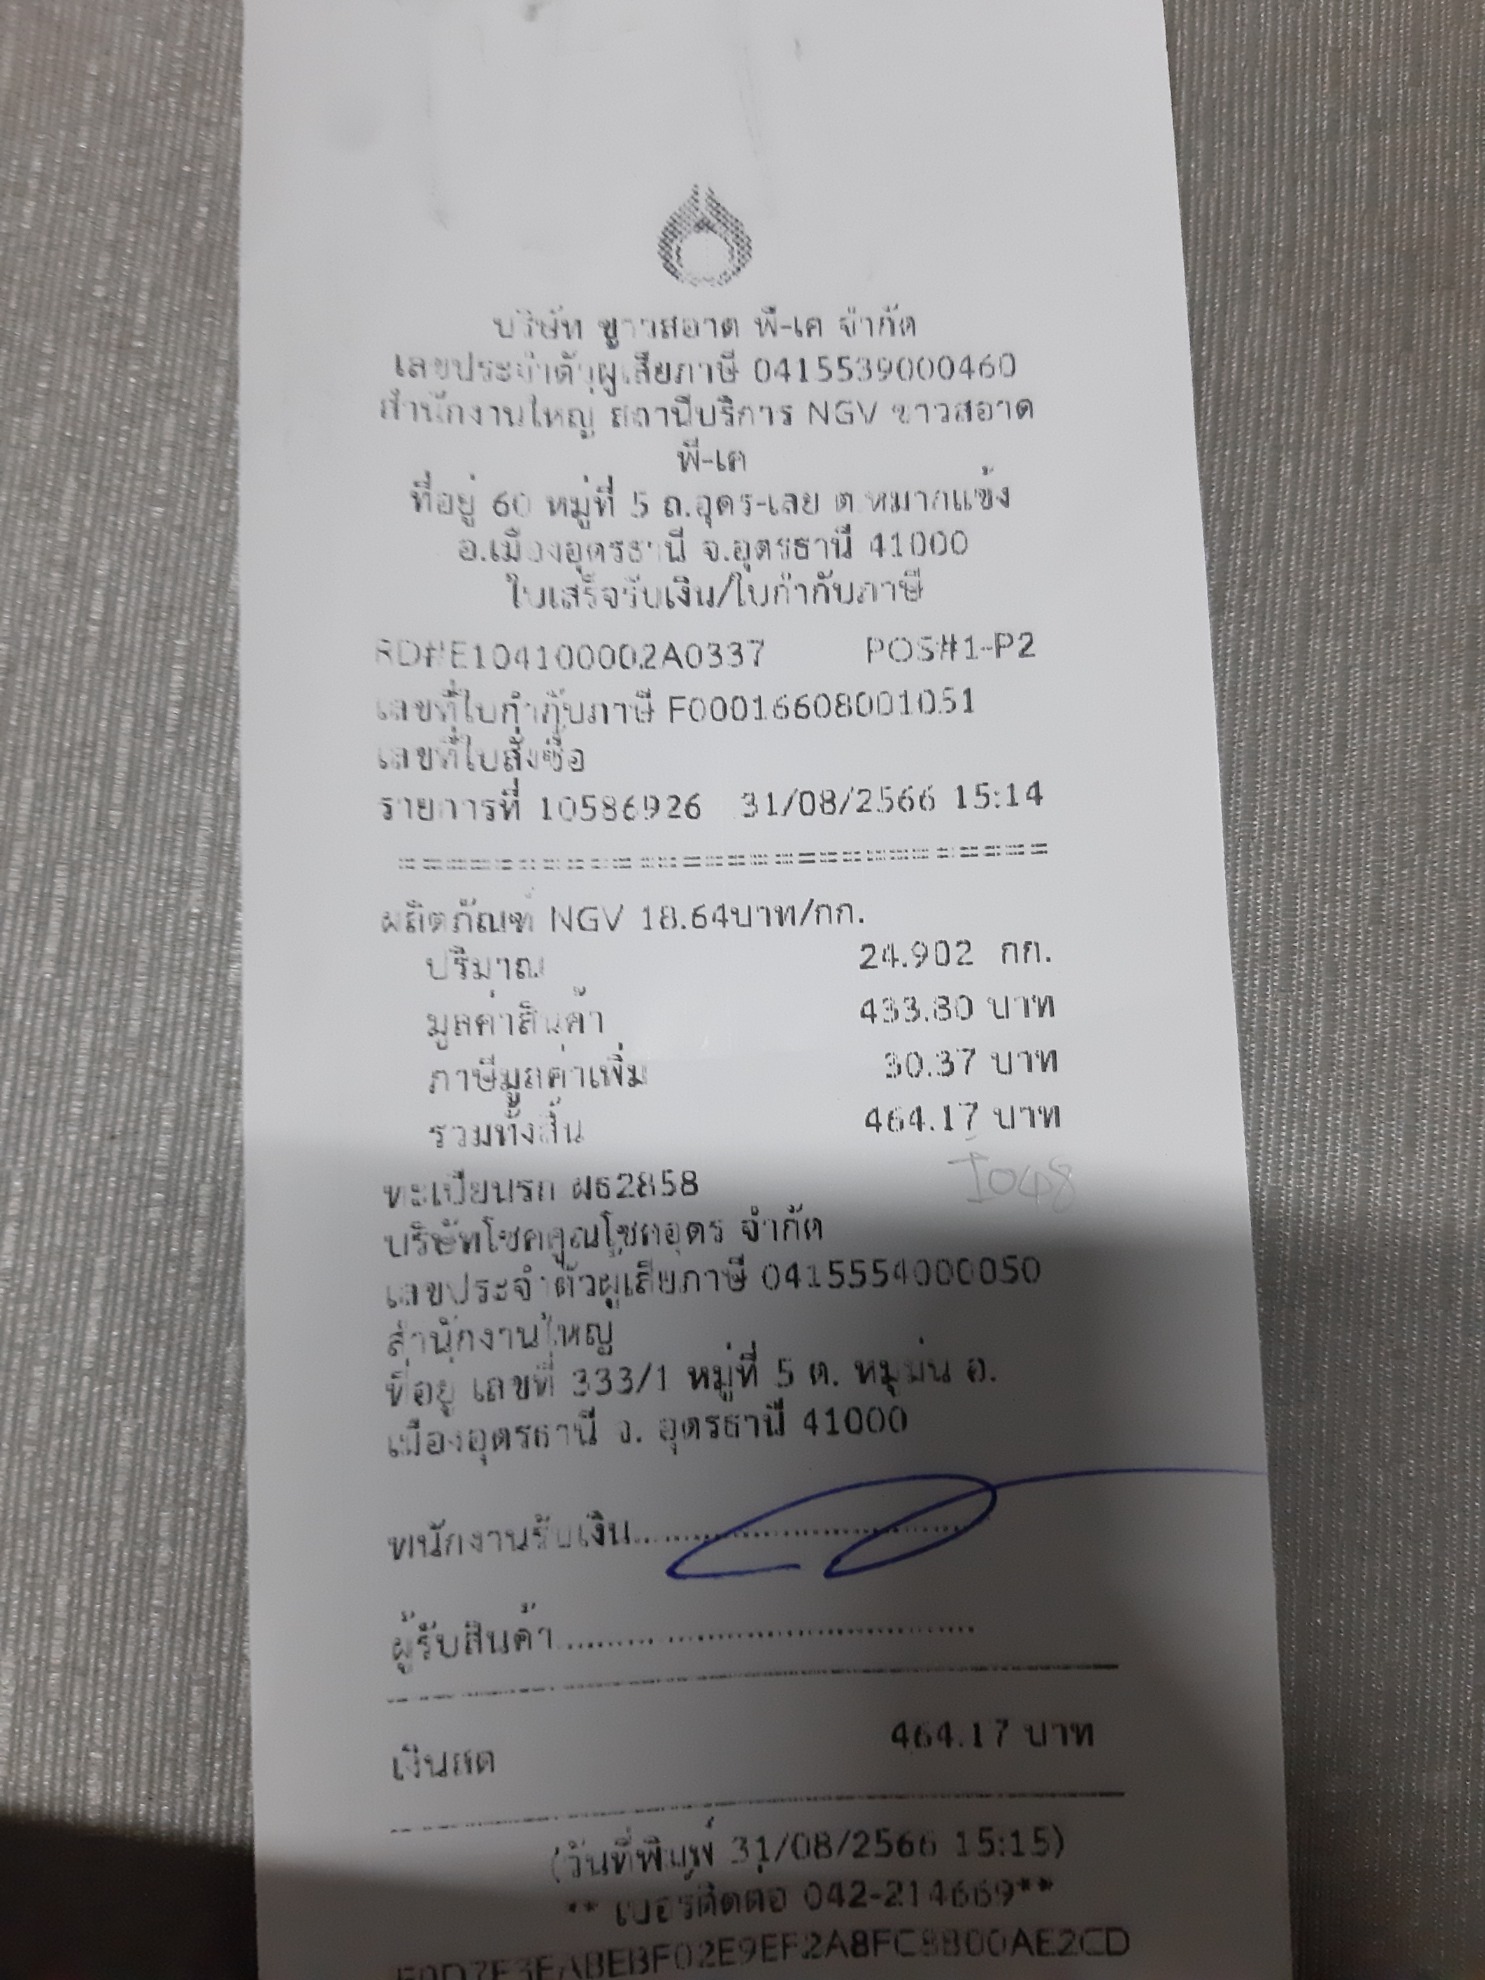 บริษัท ขาวสอาด พี-เค จำกัด
เลขประจำตัวผู้เสียภาษี 0415539000460
สำนักงานใหญ่ สถานีบริการ NGV ขาวสอาด
พี-เค
ที่อยู่ 60 หมู่ที่ 5 ถ.อุดร-เลย ต.หมากแข้ง
อ.เมืองอุดรธานี จ.อุดรธานี 41000
ใบเสร็จรับเงิน/ใบกำกับภาษี
RD#E104100002A0337 POS#1-P2
เลขที่ใบกำกับภาษี F00016608001051
เลขที่ใบสั่งซื้อ
รายการที่ 10586926 31/08/2566 15:14
ผลิตภัณฑ์ NGV 18.64บาท/กก.
ปริมาณ 24.902 กก.
มูลค่าสินค้า 433.80 บาท
ภาษีมูลค่าเพิ่ม 30.37 บาท
รวมทั้งสิ้น 464.17 บาท
I048
ทะเบียนรถ ผธ2858
บริษัทโชคคูณโชคอุดร จำกัด
เลขประจำตัวผู้เสียภาษี 0415554000050
สำนักงานใหญ่
ที่อยู่ เลขที่ 333/1 หมู่ที่ 5 ต. หมูม่น อ.
เมืองอุดรธานี จ. อุดรธานี 41000
พนักงานรับเงิน....................
ผู้รับสินค้า....................
เงินสด 464.17 บาท
(วันที่พิมพ์ 31/08/2566 15:15)
** เบอร์ติดต่อ 042-214669**